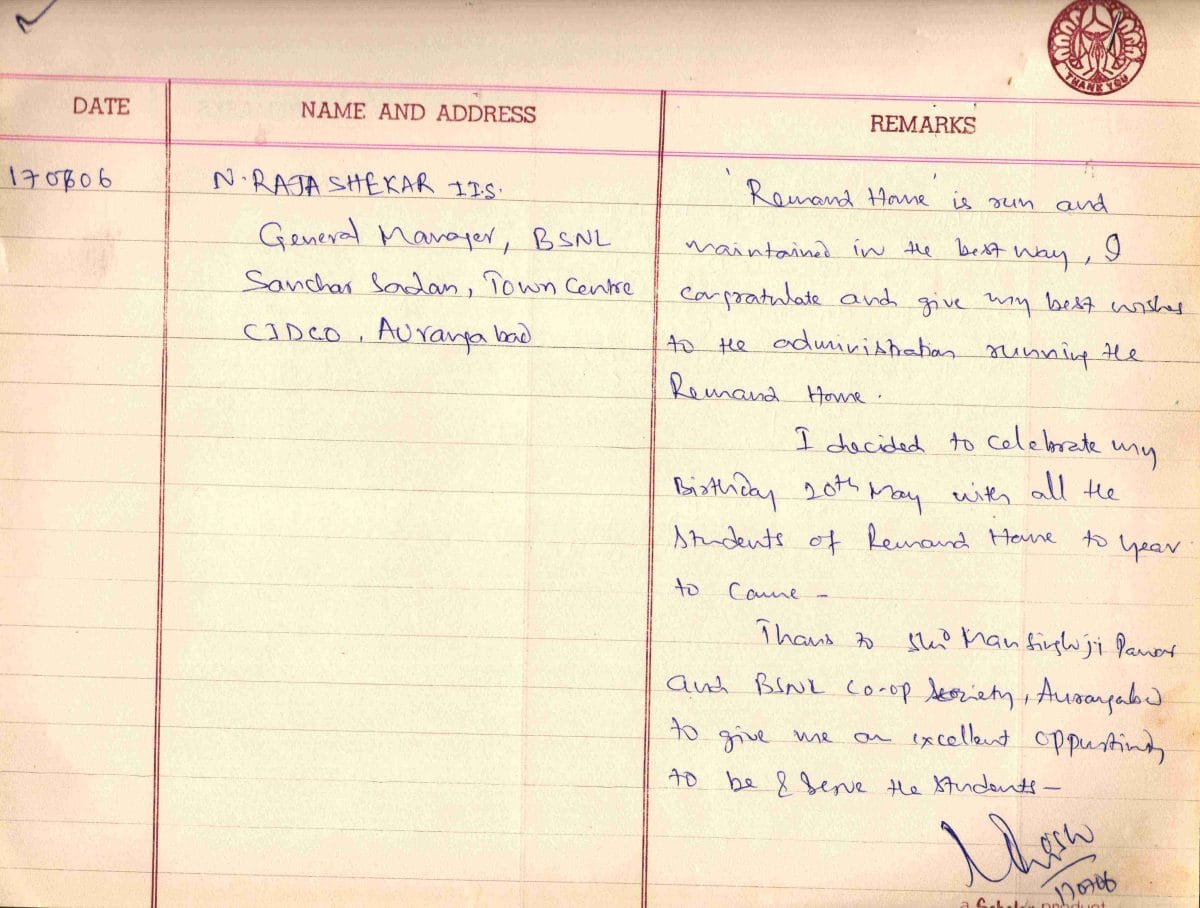 THANK YOU
DATE
NAME AND ADDRESS
REMARKS
170806
N. RAJA SHEKAR I.T.S.
General Manager, BSNL
Sanchar Sadan, Town Centre
CIDCO, Aurangabad
'Remand Home' is run and
maintained in the best way, I
congratulate and give my best wishes
to the administration running the
Remand Home.
I decided to celebrate my
Birthday 20th May with all the
Students of Remand Home to year
to come -
Thans to Shri Mansinghji Pawar
and BSNL Co-op Society, Aurangabad
to give me an excellent oppurtinity
to be & Serve the Students -
a product